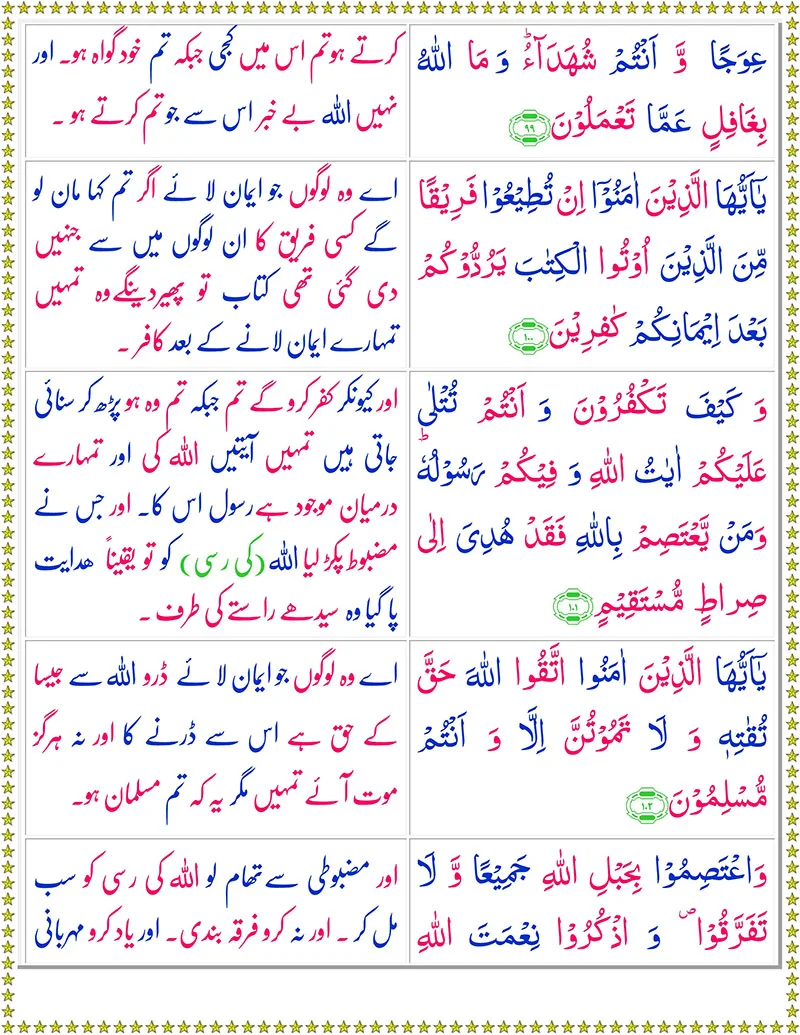 عِوَجًا وَّ اَنْتُمْ شُهَدَآءُؕ وَ مَا اللّٰهُ
بِغَافِلٍ عَمَّا تَعْمَلُوْنَ ۹۹
کرتے ہو تم اس میں کجی جبکہ تم خود گواہ ہو۔ اور
نہیں اللہ بے خبر اس سے جو تم کرتے ہو ۔
يٰۤاَيُّهَا الَّذِيْنَ اٰمَنُوْۤا اِنْ تُطِيْعُوْا فَرِيْقًا
مِّنَ الَّذِيْنَ اُوْتُوا الْكِتٰبَ يَرُدُّوْكُمْ
بَعْدَ اِيْمَانِكُمْ كٰفِرِيْنَ ۱۰۰
اے وہ لوگوں جو ایمان لا ئے اگر تم کہا مان لو
گے کسی فریق کا ان لوگوں میں سے جنہیں
دی گئی تھی کتاب تو پھیر دینگے وہ تمہیں
تمہارے ایمان لانے کے بعد کافر ۔
وَ كَيْفَ تَكْفُرُوْنَ وَ اَنْتُمْ تُتْلٰى
عَلَيْكُمْ اٰيٰتُ اللّٰهِ وَ فِيْكُمْ رَسُوْلُهٗؕ
وَمَنْ يَّعْتَصِمْ بِاللّٰهِ فَقَدْ هُدِىَ اِلٰى
صِراطٍ مُّسْتَقِيْمٍ ۱۰۱
اور کیونکر کفر کرو گے تم جبکہ تم وہ ہو پڑھ کر سنائی
جاتی ہیں تمہیں آیتیں اللہ کی اور تمہارے
درمیان موجود ہے رسول اس کا۔ اور جس نے
مضبوط پکڑ لیا اللہ (کی رسی) کو تو یقیناً ھدایت
پا گیا وہ سیدھے راستے کی طرف ۔
يٰۤاَيُّهَا الَّذِيْنَ اٰمَنُوا اتَّقُوا اللّٰهَ حَقَّ
تُقٰتِهٖ وَ لَا تَمُوْتُنَّ اِلَّا وَ اَنْتُمْ
مُّسْلِمُوْنَ ۱۰۲
اے وہ لوگوں جو ایمان لا ئے ڈرو اللہ سے جیسا
کے حق ہے اس سے ڈرنے کا اور نہ ہرگز
موت آئے تمہیں مگر یہ کہ تم مسلمان ہو۔
وَاعْتَصِمُوْا بِحَبْلِ اللّٰهِ جَمِيْعًا وَّ لَا
تَفَرَّقُوْا ۪ وَ اذْكُرُوْا نِعْمَتَ اللّٰهِ
اور مضبوطی سے تھام لو اللہ کی رسی کو سب
مل کر ۔ اور نہ کرو فرقہ بندی۔ اور یاد کرو مہربانی